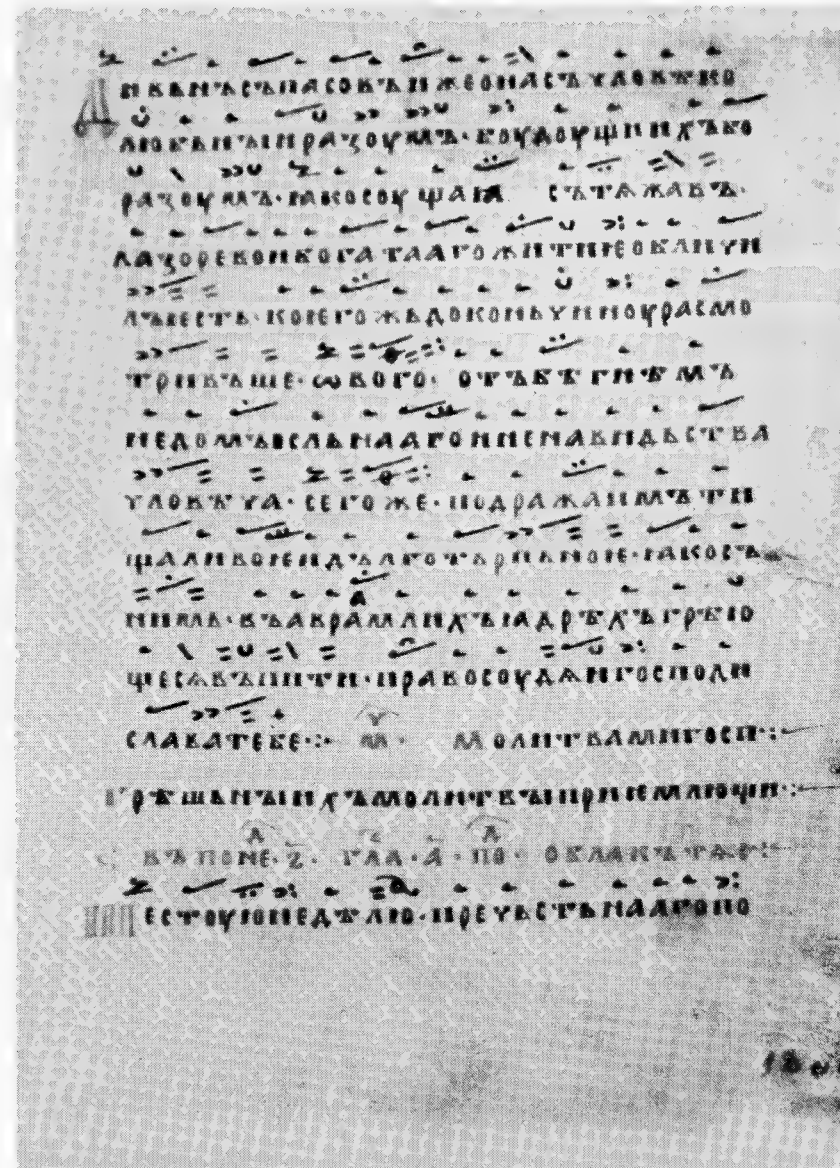 Дивьнъ съпасовъ иже о насъ чловѣко
любьныи разоумъ· коудоущиихъ бо
разоумъ· ꙗко соущаꙗ сътѧжавъ·
лазоревои богатааго житиѥ обличи
лъ ѥсть· коѥгожьдо коньчиноу расмо
тривъше· ѡвого· отъбѣгнѣмъ
немилъсрьдьнааго и ненавидьства
чловѣча· сего же· подражаимъ ти
щаливоѥ и дълготьрпѣноѥ· ꙗкo съ
нимь· въ аврамлихъ ꙗдрѣхъ грѣю
щесѧ въпити· правосоудѧи господи
слава тебе·:· м҃· молитвами госп·:
Грѣшьныихъ молитвъı приѥмлющи·:
въ поне·з҃· гла·а҃·по· облакъ тѧ·:
Шестоую недѣлю· пречьстьнааго по